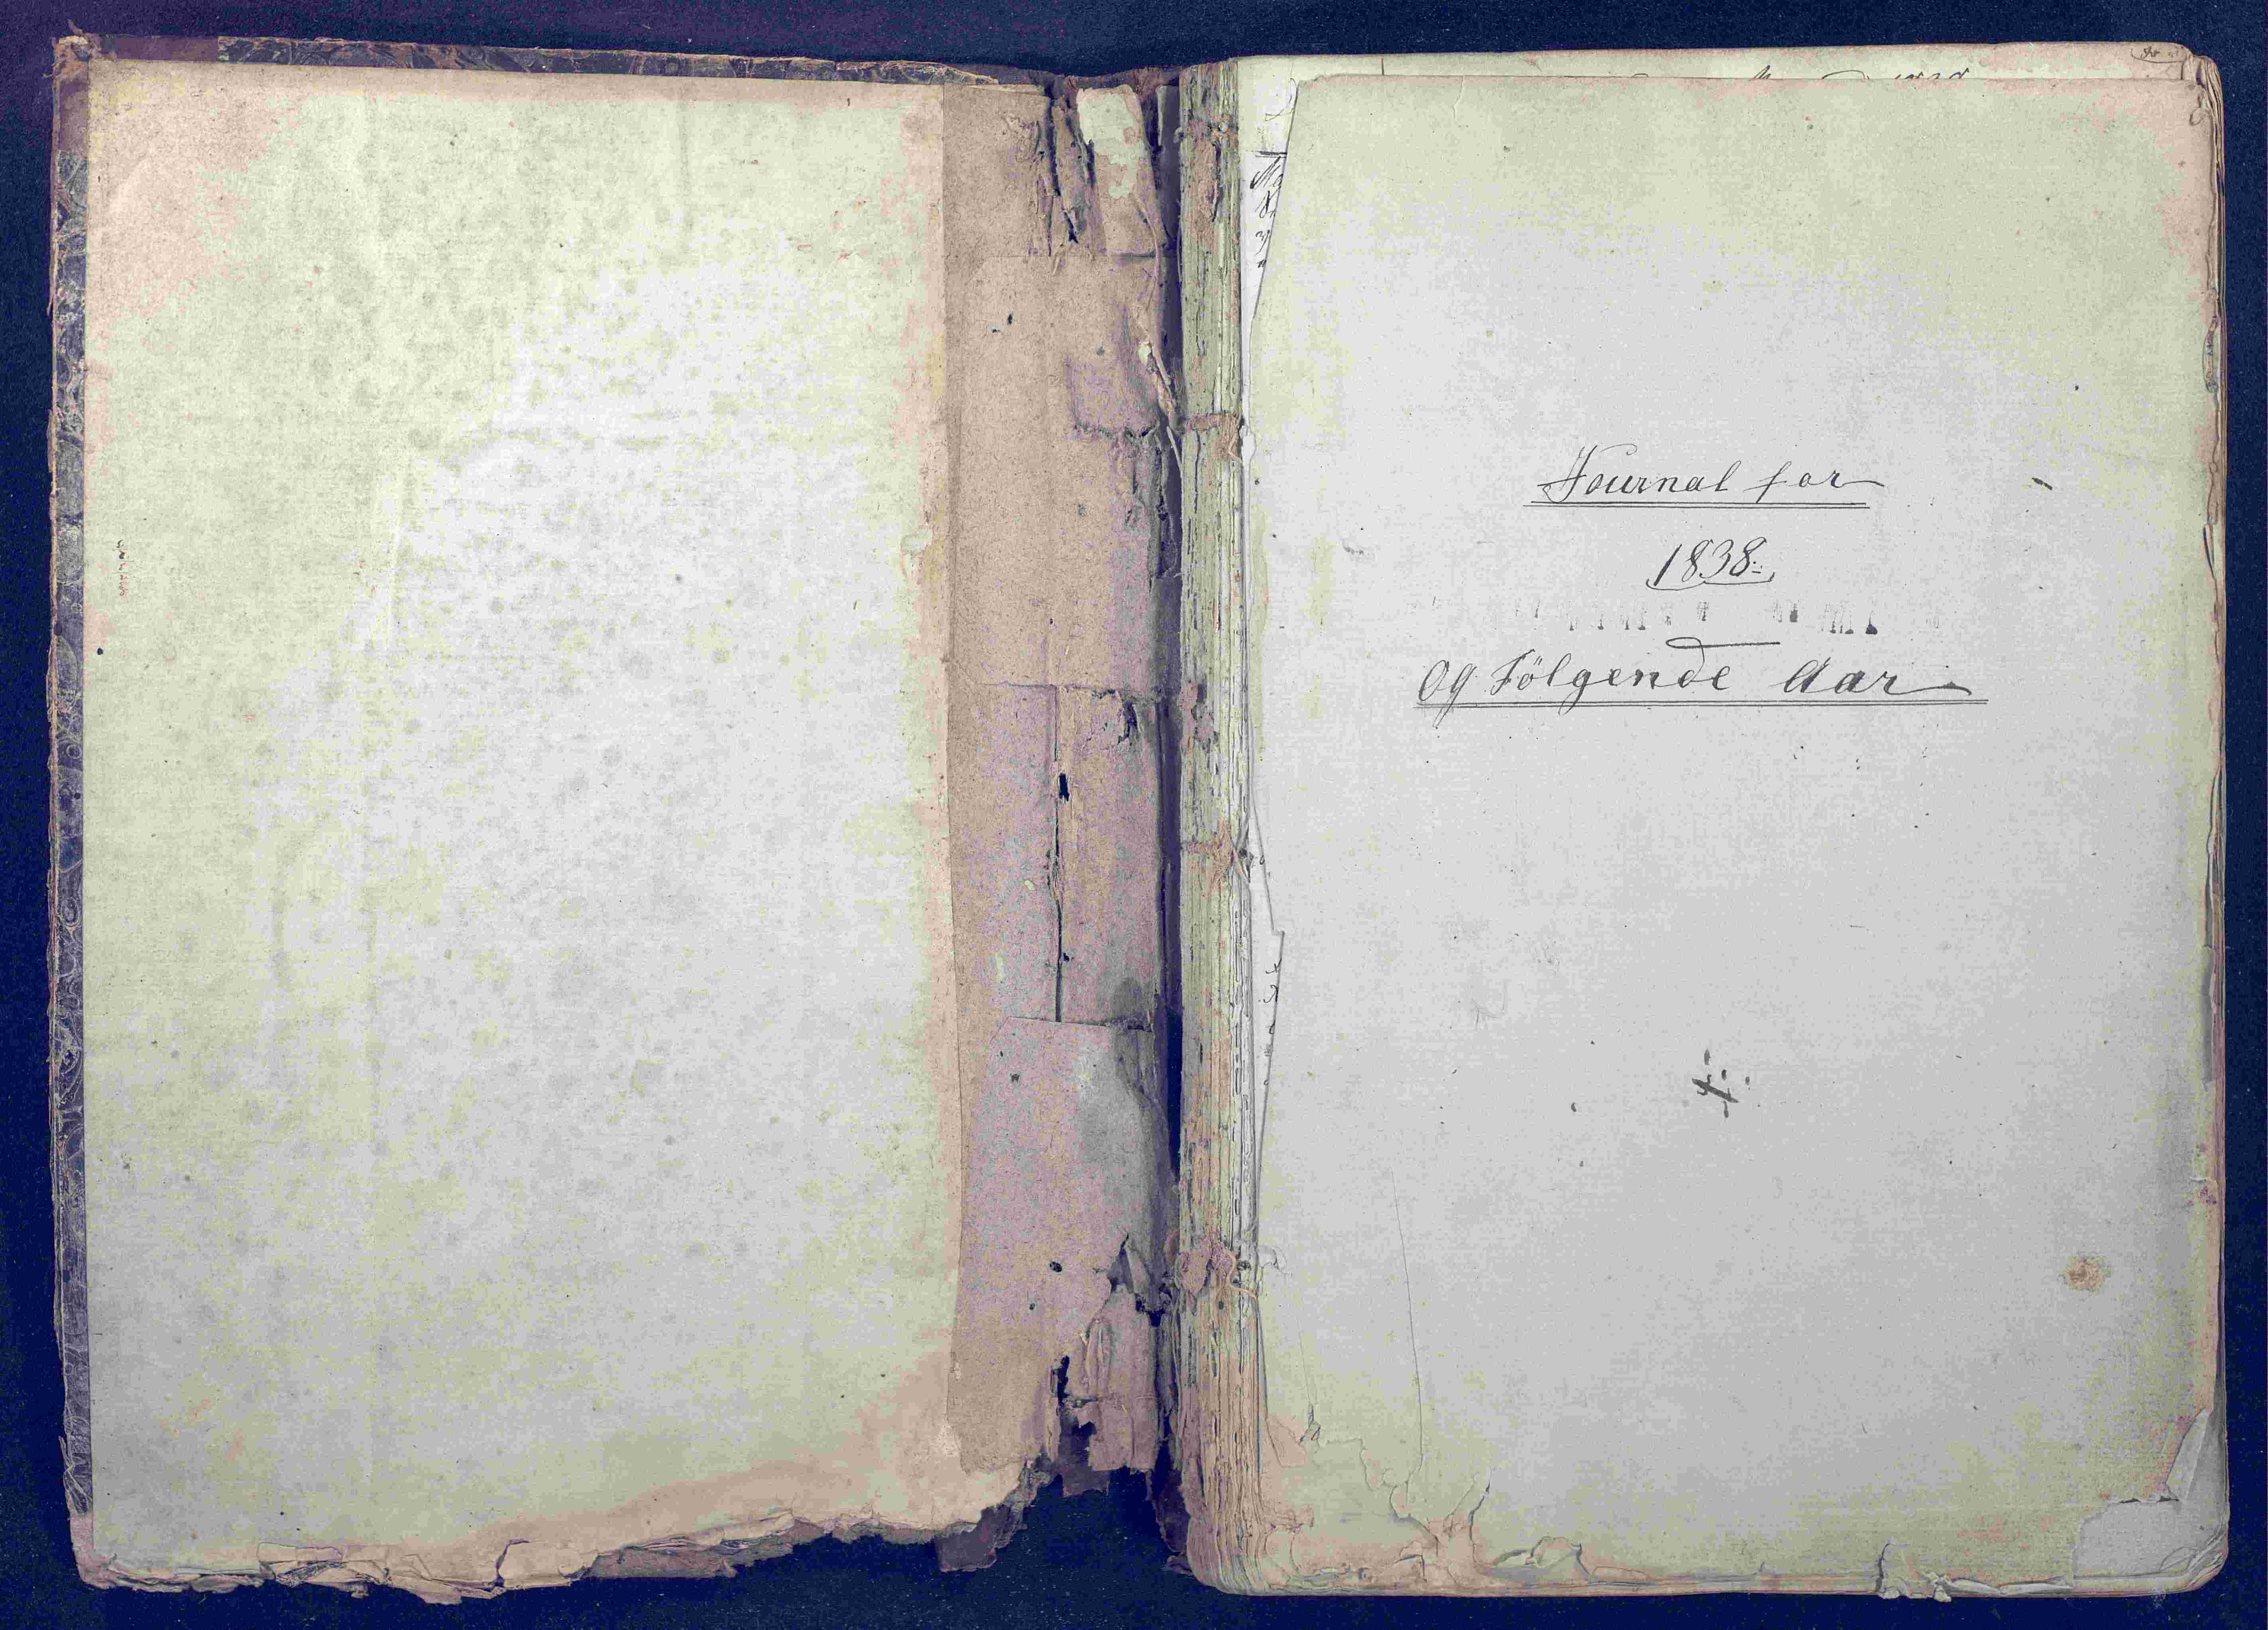 Journal for
1838.
Og Fölgende Aar